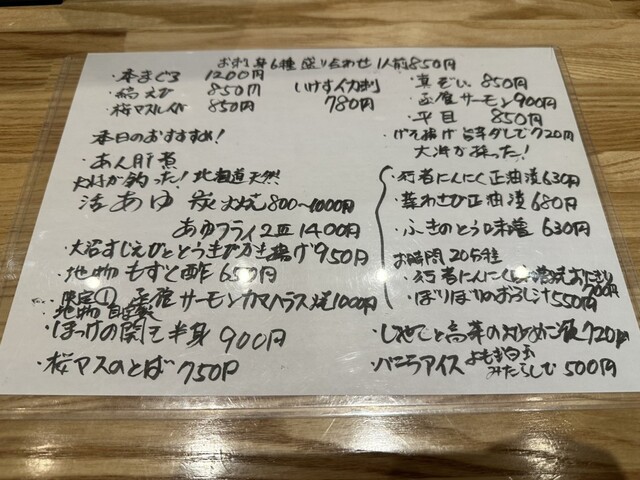 お刺身6種盛り合わせ 1人前850円
・本まぐろ 1200円
・縞えび 850円
・桜マスルイベ 850円
いけすイカ刺
780円
・真ぞい 850円
・函館サーモン900円
・平目 850円
・げそ揚げ 旨辛ダレで720円
本日のおすすめ!
・あん肝煮
大将が釣った!北海道天然
活あゆ 炭火焼800~1000円
あゆフライ2皿1400円
・大沼すじえびととうきびかき揚げ950円
・地物 もずく酢 650円
・限定① 函館サーモンカマハラス焼1000円
地物 自家製
・ほっけの開き半身 900円
・桜マスのとば 750円
大将が採った!
・行者にんにく正油漬630円
・葉わさび正油漬680円
・ふきのとう味噌 630円
お時間20分程
・行者にんにく味噌焼おにぎり
700円
・ぼりぼりのおろし汁550円
・高菜の炒めご飯720円
・バニラアイス よもぎ白玉
みたらしで 500円